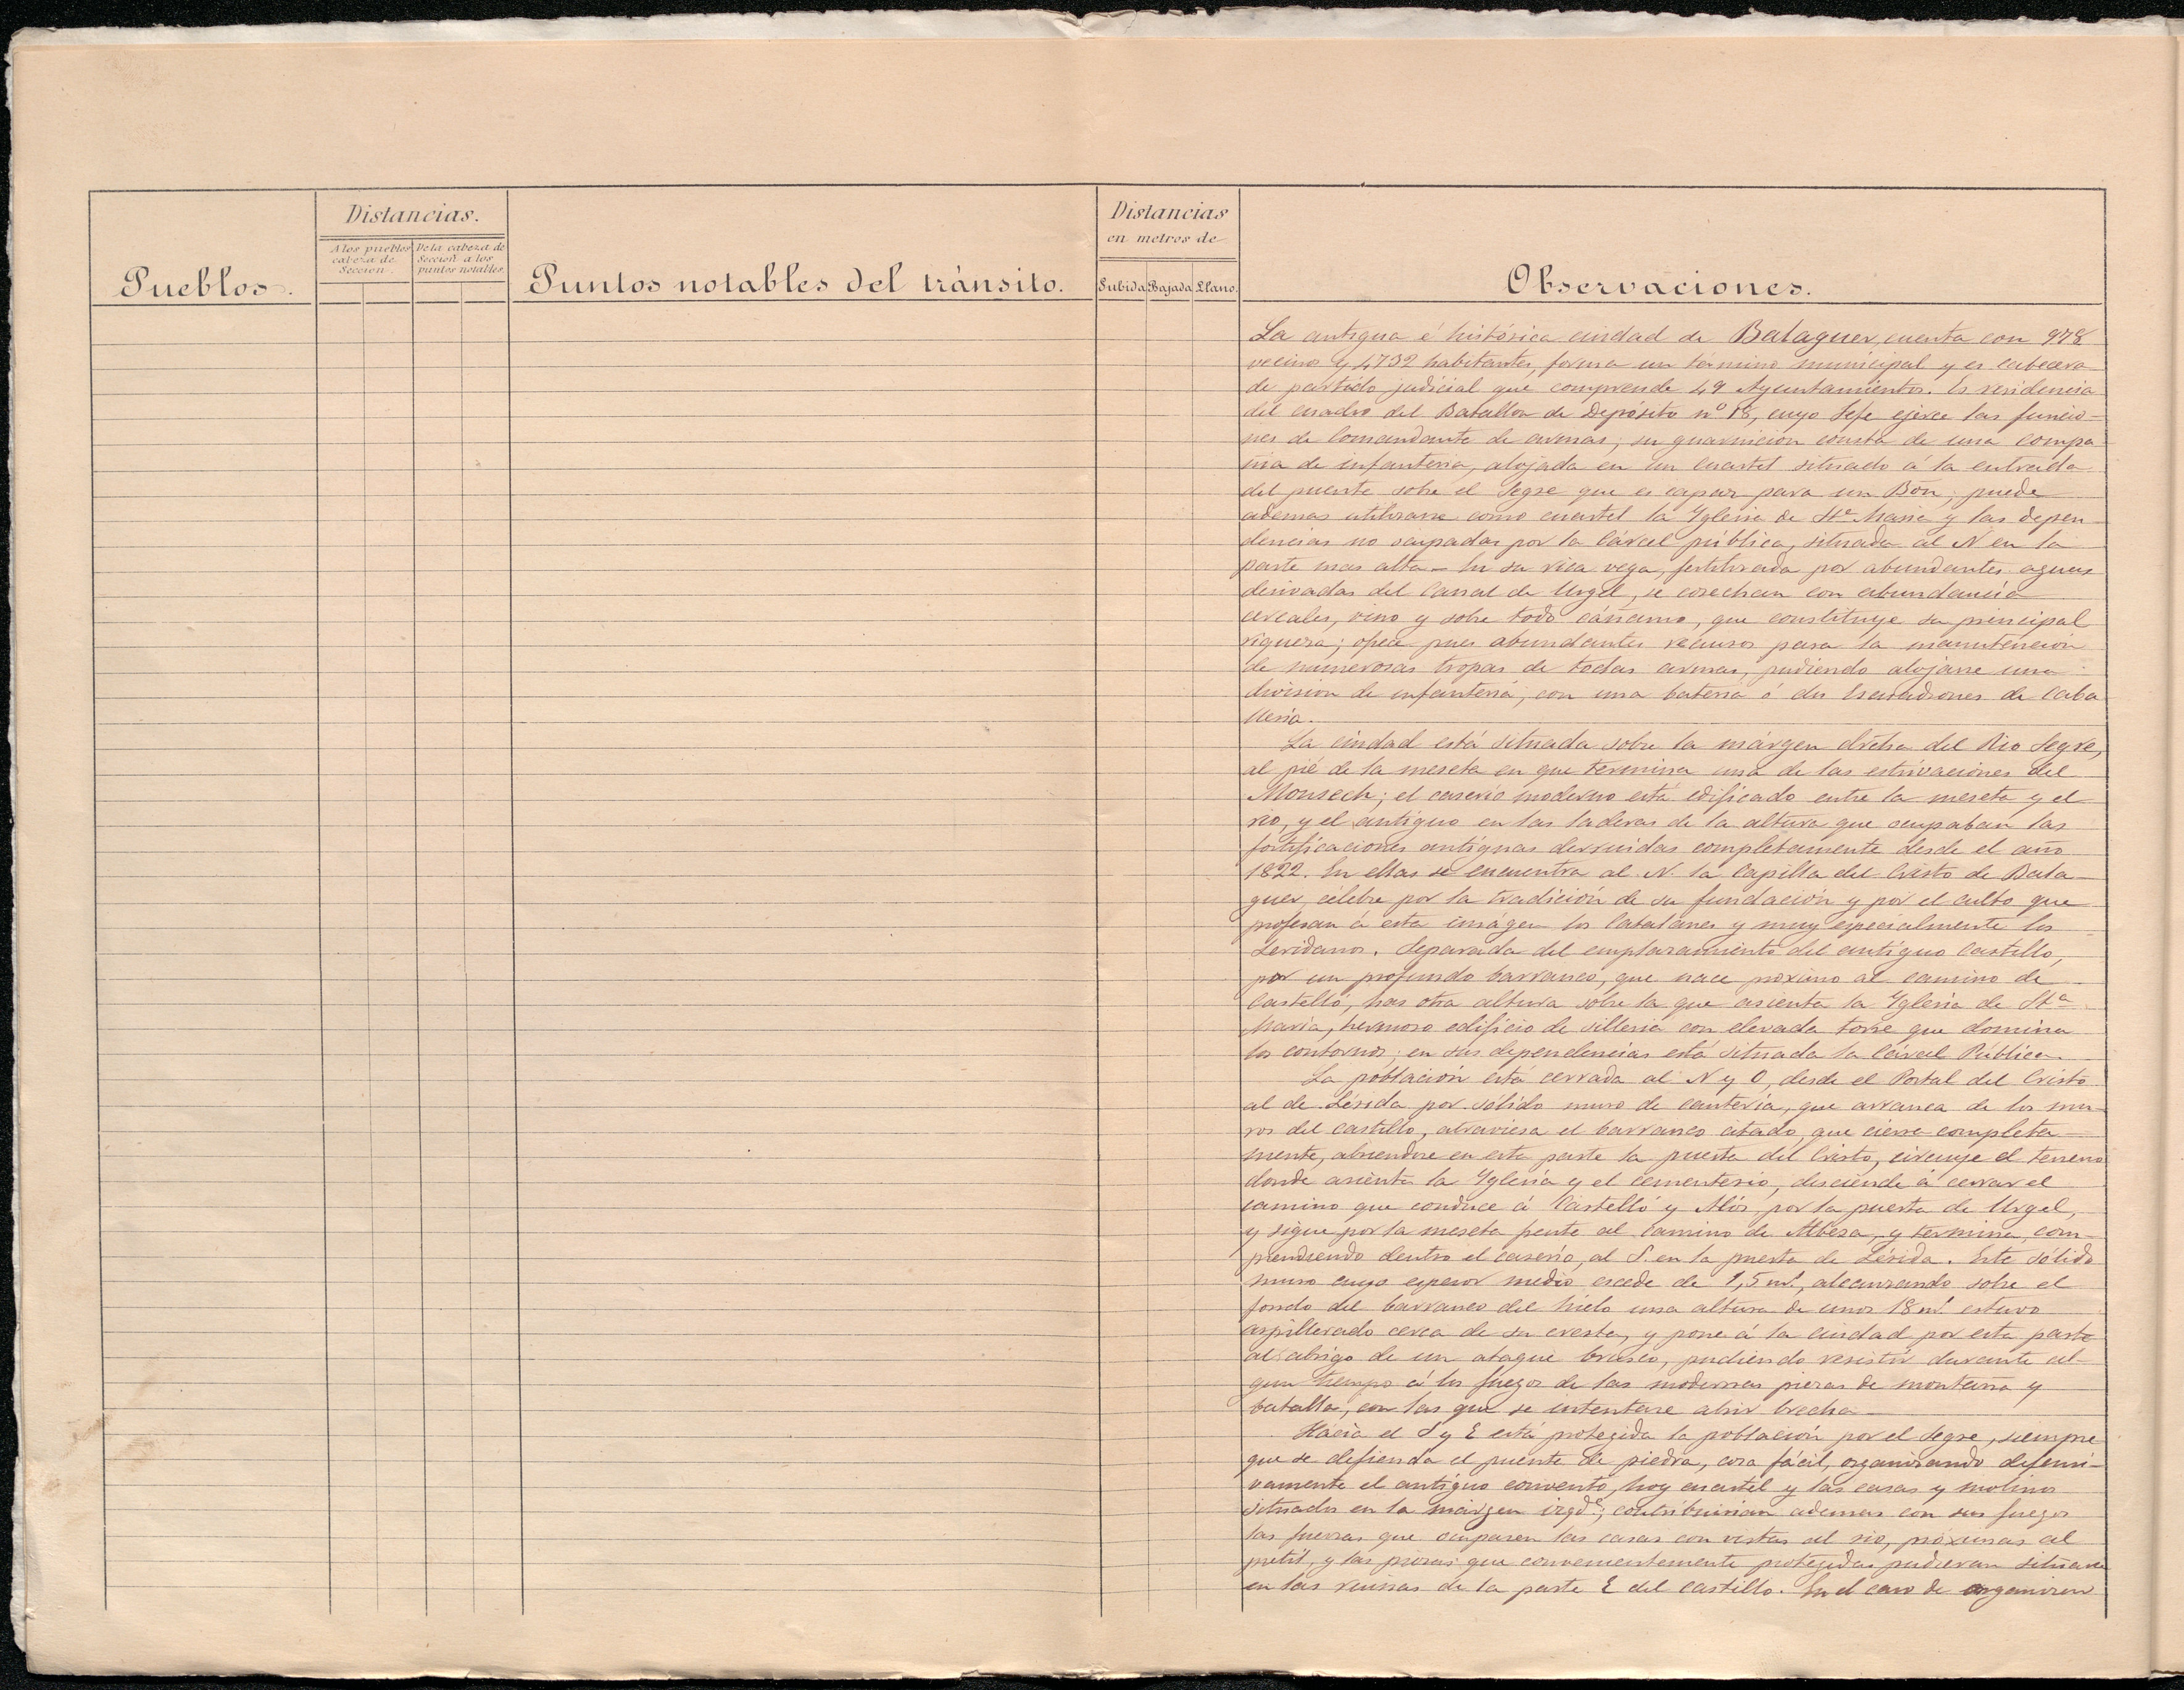 Pueblos.
Distancias.
A los pueblos cabeza de Sección.
De la cabeza de Sección a los puntos notables.
Puntos notables del tránsito.
Distancias en metros de
Subida Bajada Llano.
Observaciones.
La antigua é histórica ciudad de Balaguer, cuenta con 978
vecinos y 4732 habitantes, forma un término municipal y es cabecera
de partido judicial que comprende 49 Ayuntamientos. Es residencia
del cuadro del Batallon de Depósito nº 18, cuyo Jefe ejerce las funcio-
nes de Comandante de armas; su guarnicion consta de una compa
ñia de infanteria, alojada en un cuartel situado á la entrada
del puente sobre el Segre que es capaz para un Bon; puede
ademas utilizarse como cuartel la Yglesia de Sta Maria y las depen
dencias no ocupadas por la Cárcel pública, situada al N en la
parte mas alta - En su rica vega, fertilizada por abundantes aguas
derivadas del Canal de Urgel, se cosechan con abundancia
cereales, vino y sobre todo cáñamo, que constituye su principal
riqueza; ofrece pues abundantes recursos para la manutencion
de numerosas tropas de todas armas, pudiendo alojarse una
division de infanteria, con una bateria ó dos Escuadrones de Caba
lleria.
La ciudad está situada sobre la márgen drcha del Rio Segre,
al pié de la meseta en que termina una de las estrivaciones del
Monsech; el caserio moderno está edificado entre la meseta y el
rio, y el antiguo en las laderas de la altura que ocupaban las
fortificaciones antiguas derruidas completamente desde el año
1822. En ellas se encuentra al N. la Capilla del Cristo de Bala-
guer, célebre por la tradición de su fundación y por el culto que
profesan á esta imágen los Catalanes y muy especialmente los
Leridanos. Separada del emplazamiento del antiguo Castillo,
por un profundo barranco, que nace proximo al camino de
Castelló, hay otra altura sobre la que asienta la Yglesia de Sta
Maria, hermoso edificio de silleria con elevada torre que domina
los contornos; en sus dependencias está situada la Cárcel Pública.
La población está cerrada al N y O, desde el Portal del Cristo
al de Lérida por sólido muro de canteria, que arranca de los mu-
ros del castillo, atraviesa el barranco citado, que cierra completa-
mente, abriendose en esta parte la puerta del Cristo, circuye el terreno
donde asienta la Yglesia y el cementerio, desciende á cerrar el
camino que conduce á Castelló y Alós, por la puerta de Urgel,
y sigue por la meseta frente al camino de Albesa, y termina, com-
prendiendo dentro el caserio, al S. en la puerta de Lérida. Este sólido
muro cuyo espesor medio escede de 1,5 m., alcanzando sobre el
fondo del barranco del hielo una altura de unos 18 m. estuvo
aspillerado cerca de su cresta, y pone á la ciudad por esta parte
al abrigo de un ataque brusco, pudiendo resistir durante al-
gun tiempo á los fuegos de las modernas piezas de montaña y
batalla, con las que se intentare abrir brecha -
Hacia el S y E está protegida la población por el Segre, siempre
que se defienda el puente de piedra, cosa fácil, organizando defensi-
vamente el antiguo convento, hoy cuartel y las casas y molinos
situados en la márgen izqda; contribuirian ademas con sus fuegos
las fuerzas que ocuparen las casas con vistas al rio, próximas al
pretil, y las piezas que convenientemente protegidas pudieran situarse
en las ruinas de la parte E del castillo. En el caso de organizar